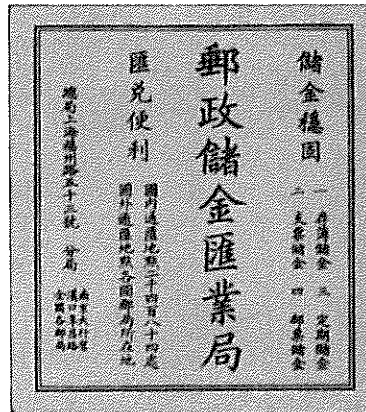 儲金穩固
一 存簿儲金 三 定期儲金
二 支票儲金 四 郵票儲金
郵政儲金匯業局
匯兌便利
國內通匯地點二千四百八十四處
國外通匯地點各國郵局所在地
總局上海福州路五十三號 分局
全國各郵局